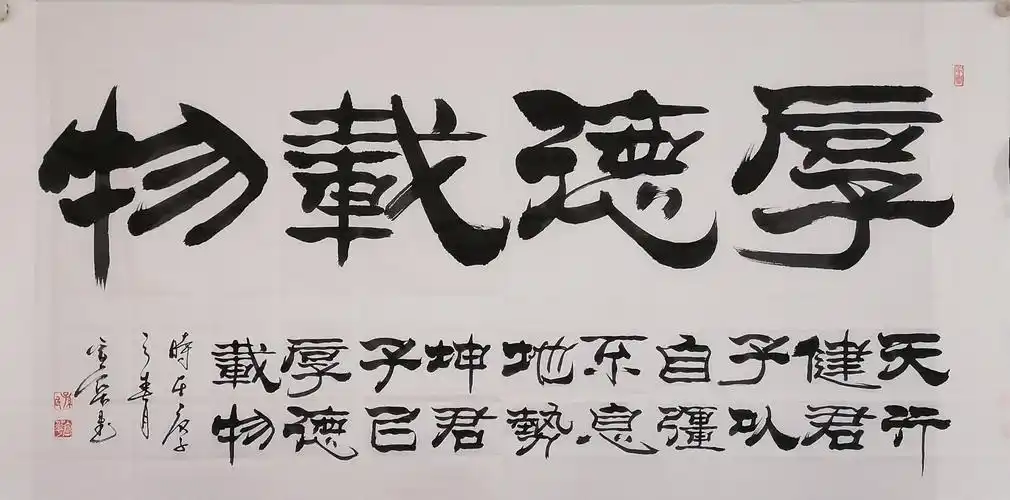 厚德載物
天行
健君
子以
自彊
不息
地勢
坤君
子已
厚德
載物
時在庚子
之春月
書